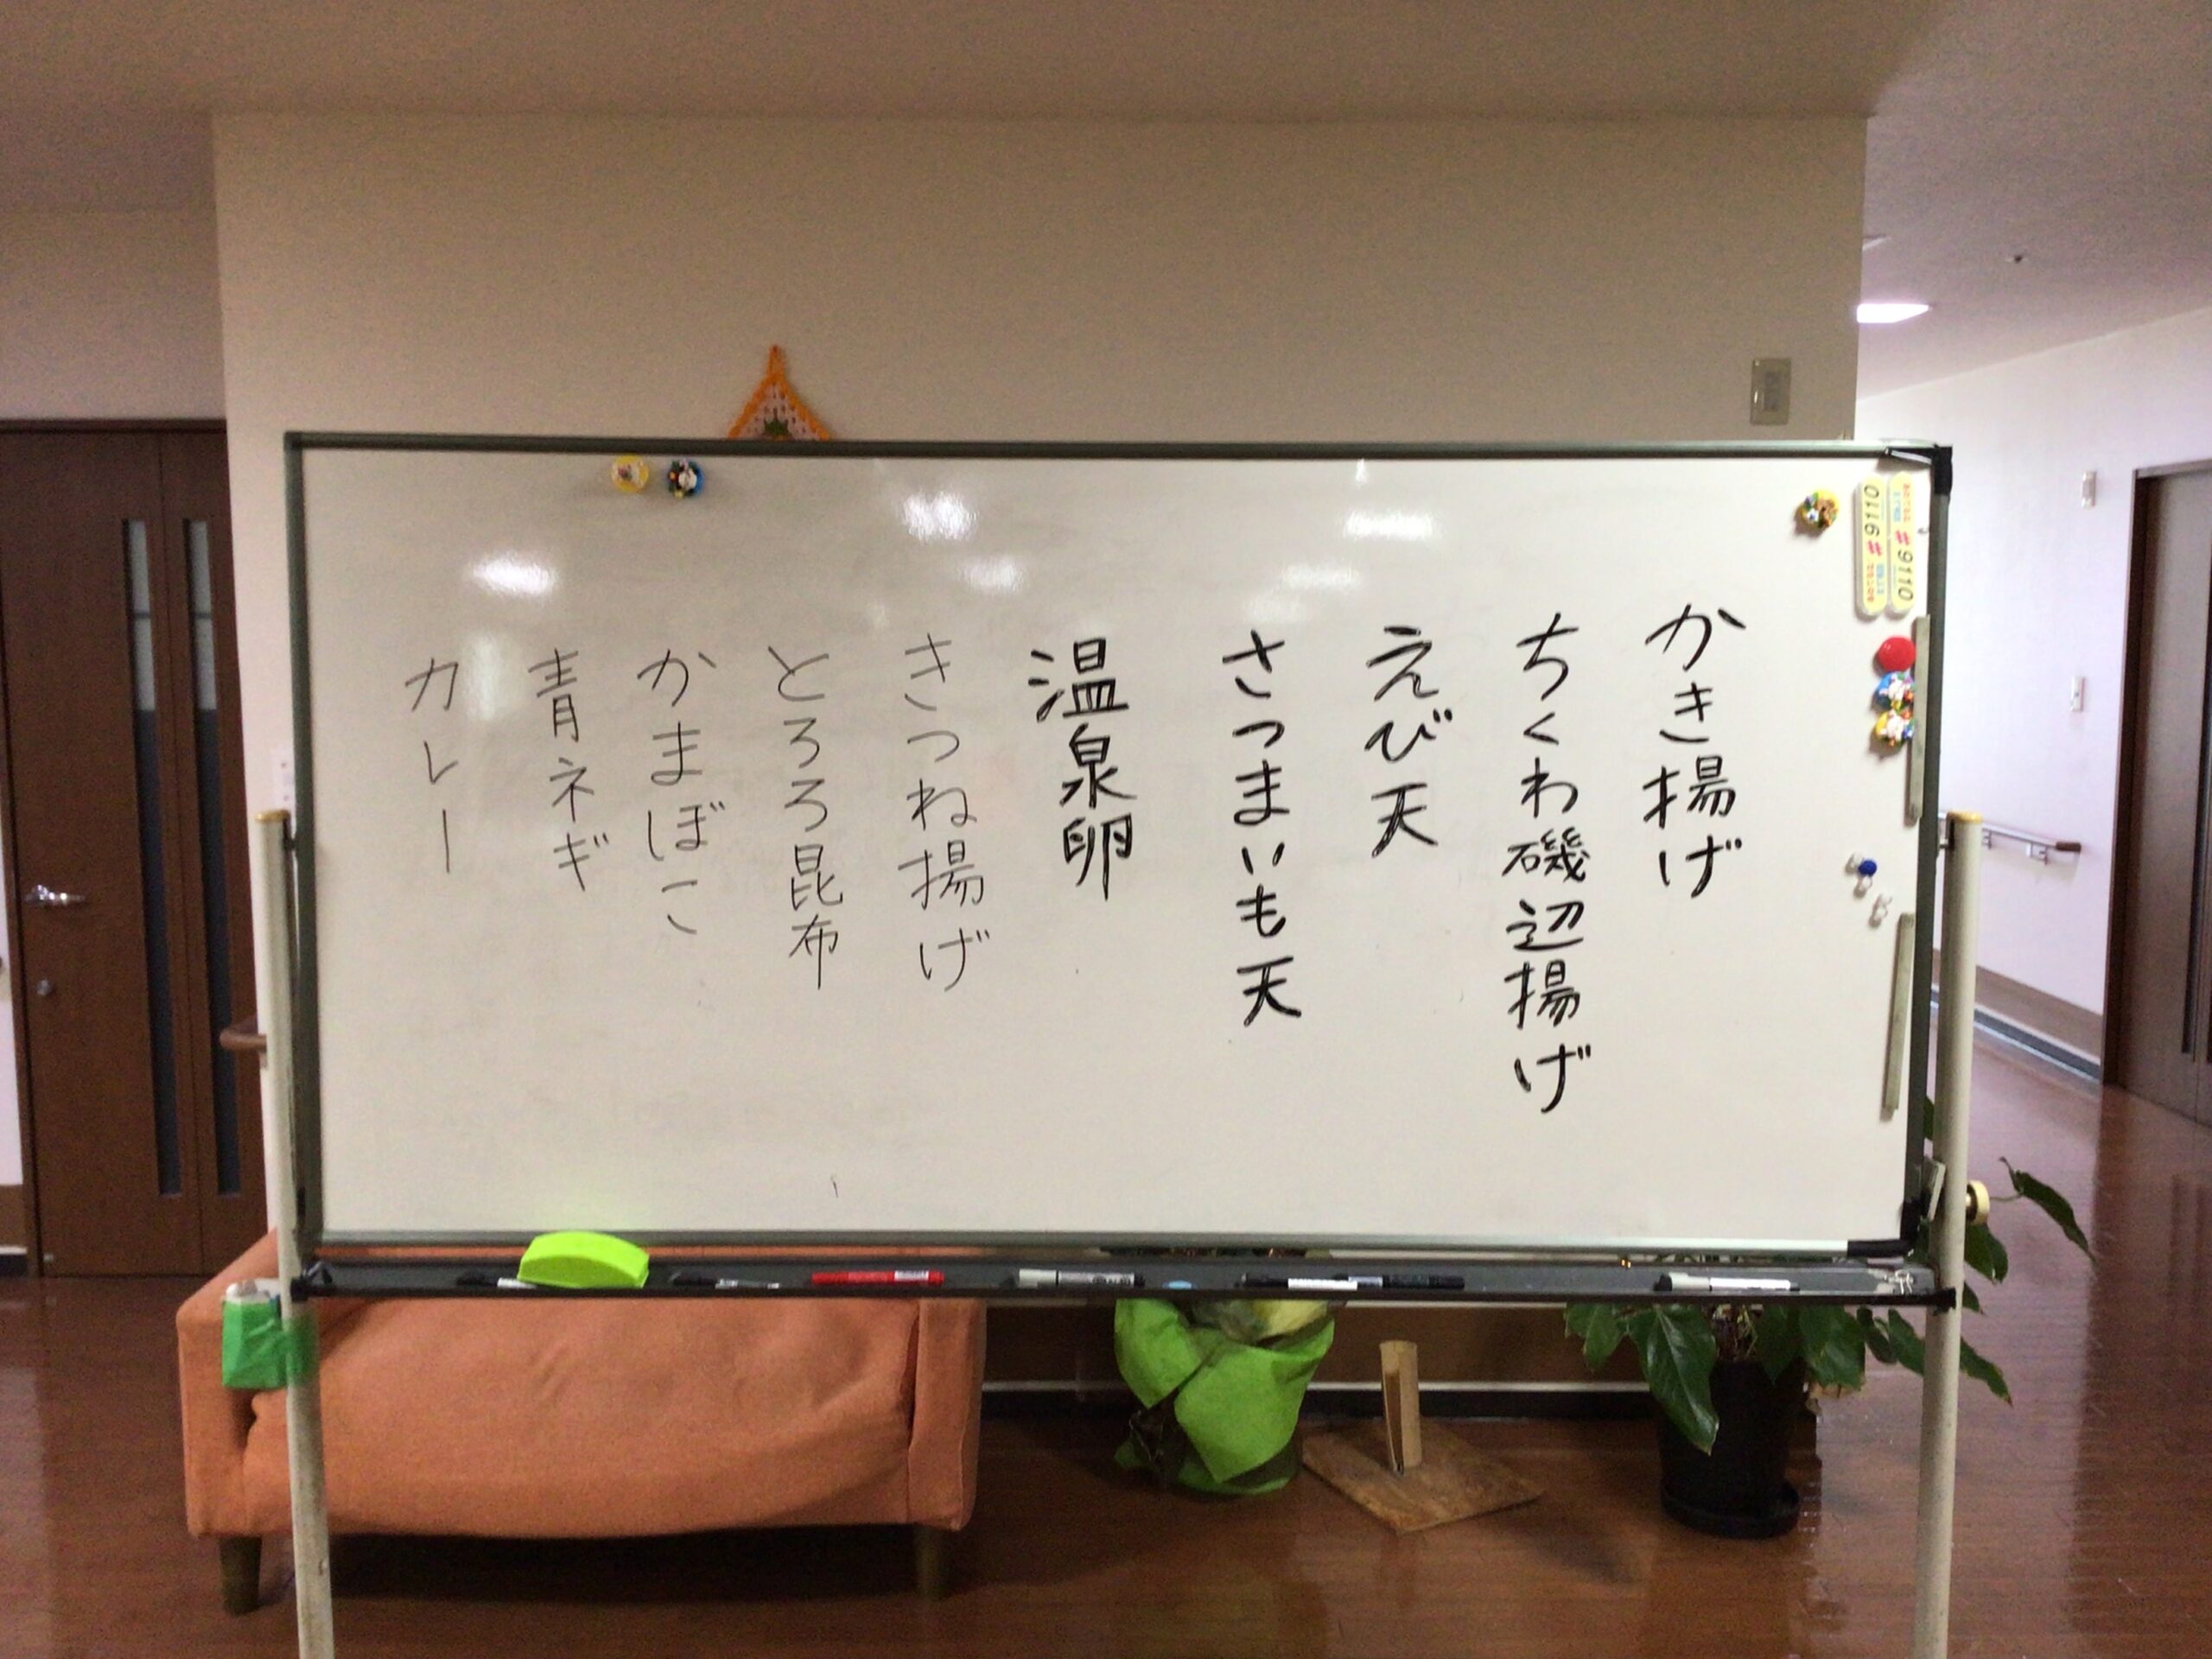 かき揚げ
ちくわ磯辺揚げ
えび天
さつまいも天
温泉卵
きつね揚げ
とろろ昆布
かまぼこ
青ネギ
カレー
#9110
#9110